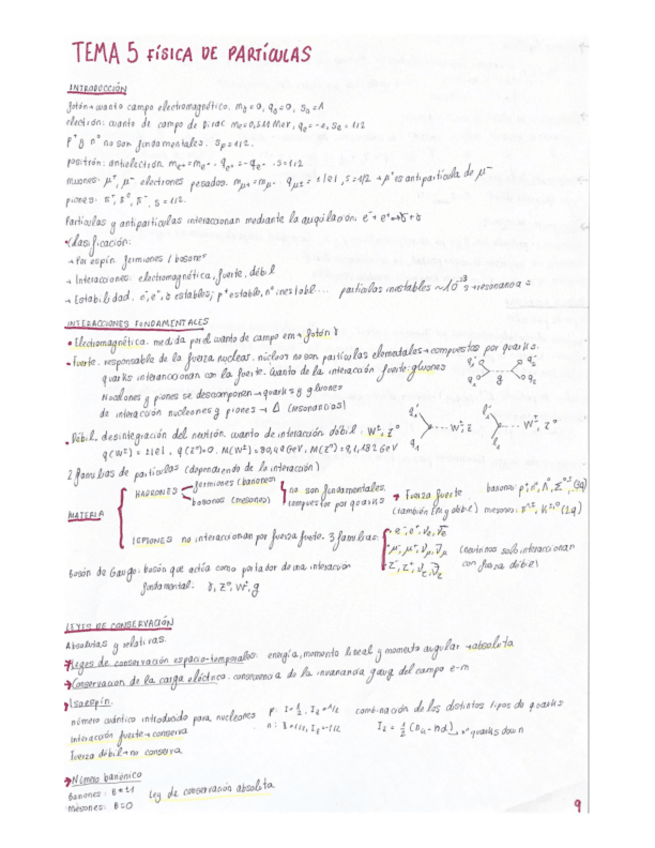 TEMA 5 FÍSICA DE PARTÍCULAS
INTRODUCCIÓN
fotón→cuanto campo electromagnético. m₀=0, q₀=0, s₀=1
electrón: cuanto de campo de Dirac me=0,511 MeV, qe=-e, se=1/2
p⁺ y n⁰ no son fundamentales. sp=1/2.
positrón: antielectrón me+=me-. qe+=-qe-. s=1/2
muones: μ⁺, μ⁻ electrones pesados. mμ+=mμ-. qμ±=±|e|, s=1/2 → μ⁺ es antipartícula de μ⁻
piones: π⁺, π⁰, π⁻, s=1/2.
Partículas y antipartículas interaccionan mediante la aniquilación: e⁻+e⁺↔γ+γ
•Clasificación:
→ Por espín. fermiones / bosones
→ Interacciones: electromagnética, fuerte, débil
→ Estabilidad. e⁻, e⁺, γ estables; p⁺ estable, n⁰ inestabl... partículas inestables ~10⁻²³ s→resonancias
INTERACCIONES FUNDAMENTALES
• Electromagnética. medida por el cuanto de campo em → fotón γ
• Fuerte. responsable de la fuerza nuclear. núcleos no son partículas elementales→compuestos por quarks.
quarks interaccionan con la fuerte. cuanto de la interacción fuerte: gluones
Nucleones y piones se descomponen→quarks y gluones
de interacción nucleones y piones → Δ (resonancias)
• Débil. desintegración del neutrón. cuanto de interacción débil: W±, Z⁰
q(W±)=±|e|, q(Z⁰)=0. M(W±)=80,40 GeV, M(Z⁰)=91,182 GeV
2 familias de partículas (dependiendo de la interacción)
MATERIA
HADRONES
fermiones (bariones)
bosones (mesones)
no son fundamentales.
compuestos por quarks
→ Fuerza fuerte
(también EM y débil)
bariones: p⁺, n⁰, Λ⁰, Σ±,⁰ (3q)
mesones: π±,⁰, K±,⁰ (2q)
LEPTONES no interaccionan por fuerza fuerte. 3 familias:
e⁻, e⁺, νe, ν̄e
μ⁻, μ⁺, νμ, ν̄μ
τ⁻, τ⁺, ντ, ν̄τ
(neutrinos solo interaccionan
con fuerza débil)
Bosón de Gauge: bosón que actúa como portador de una interacción
fundamental: γ, Z⁰, W±, g
LEYES DE CONSERVACIÓN
Absolutas y relativas.
→Leyes de conservación espacio-temporales: energía, momento lineal y momento angular →absoluta
→Conservación de la carga eléctrica. consecuencia de la invarianza gaug del campo e-m
→Isoespín.
número cuántico introducido para nucleones p: I=1/2, I₃=1/2 combinación de los distintos tipos de quarks
n: I=1/2, I₃=-1/2 I₃=1/2(nu-nd)→nº quarks down
Interacción fuerte→conserva
Fuerza débil→no conserva
→Número bariónico
Bariones: B=±1 ley de conservación absoluta
Mesones: B=0
9